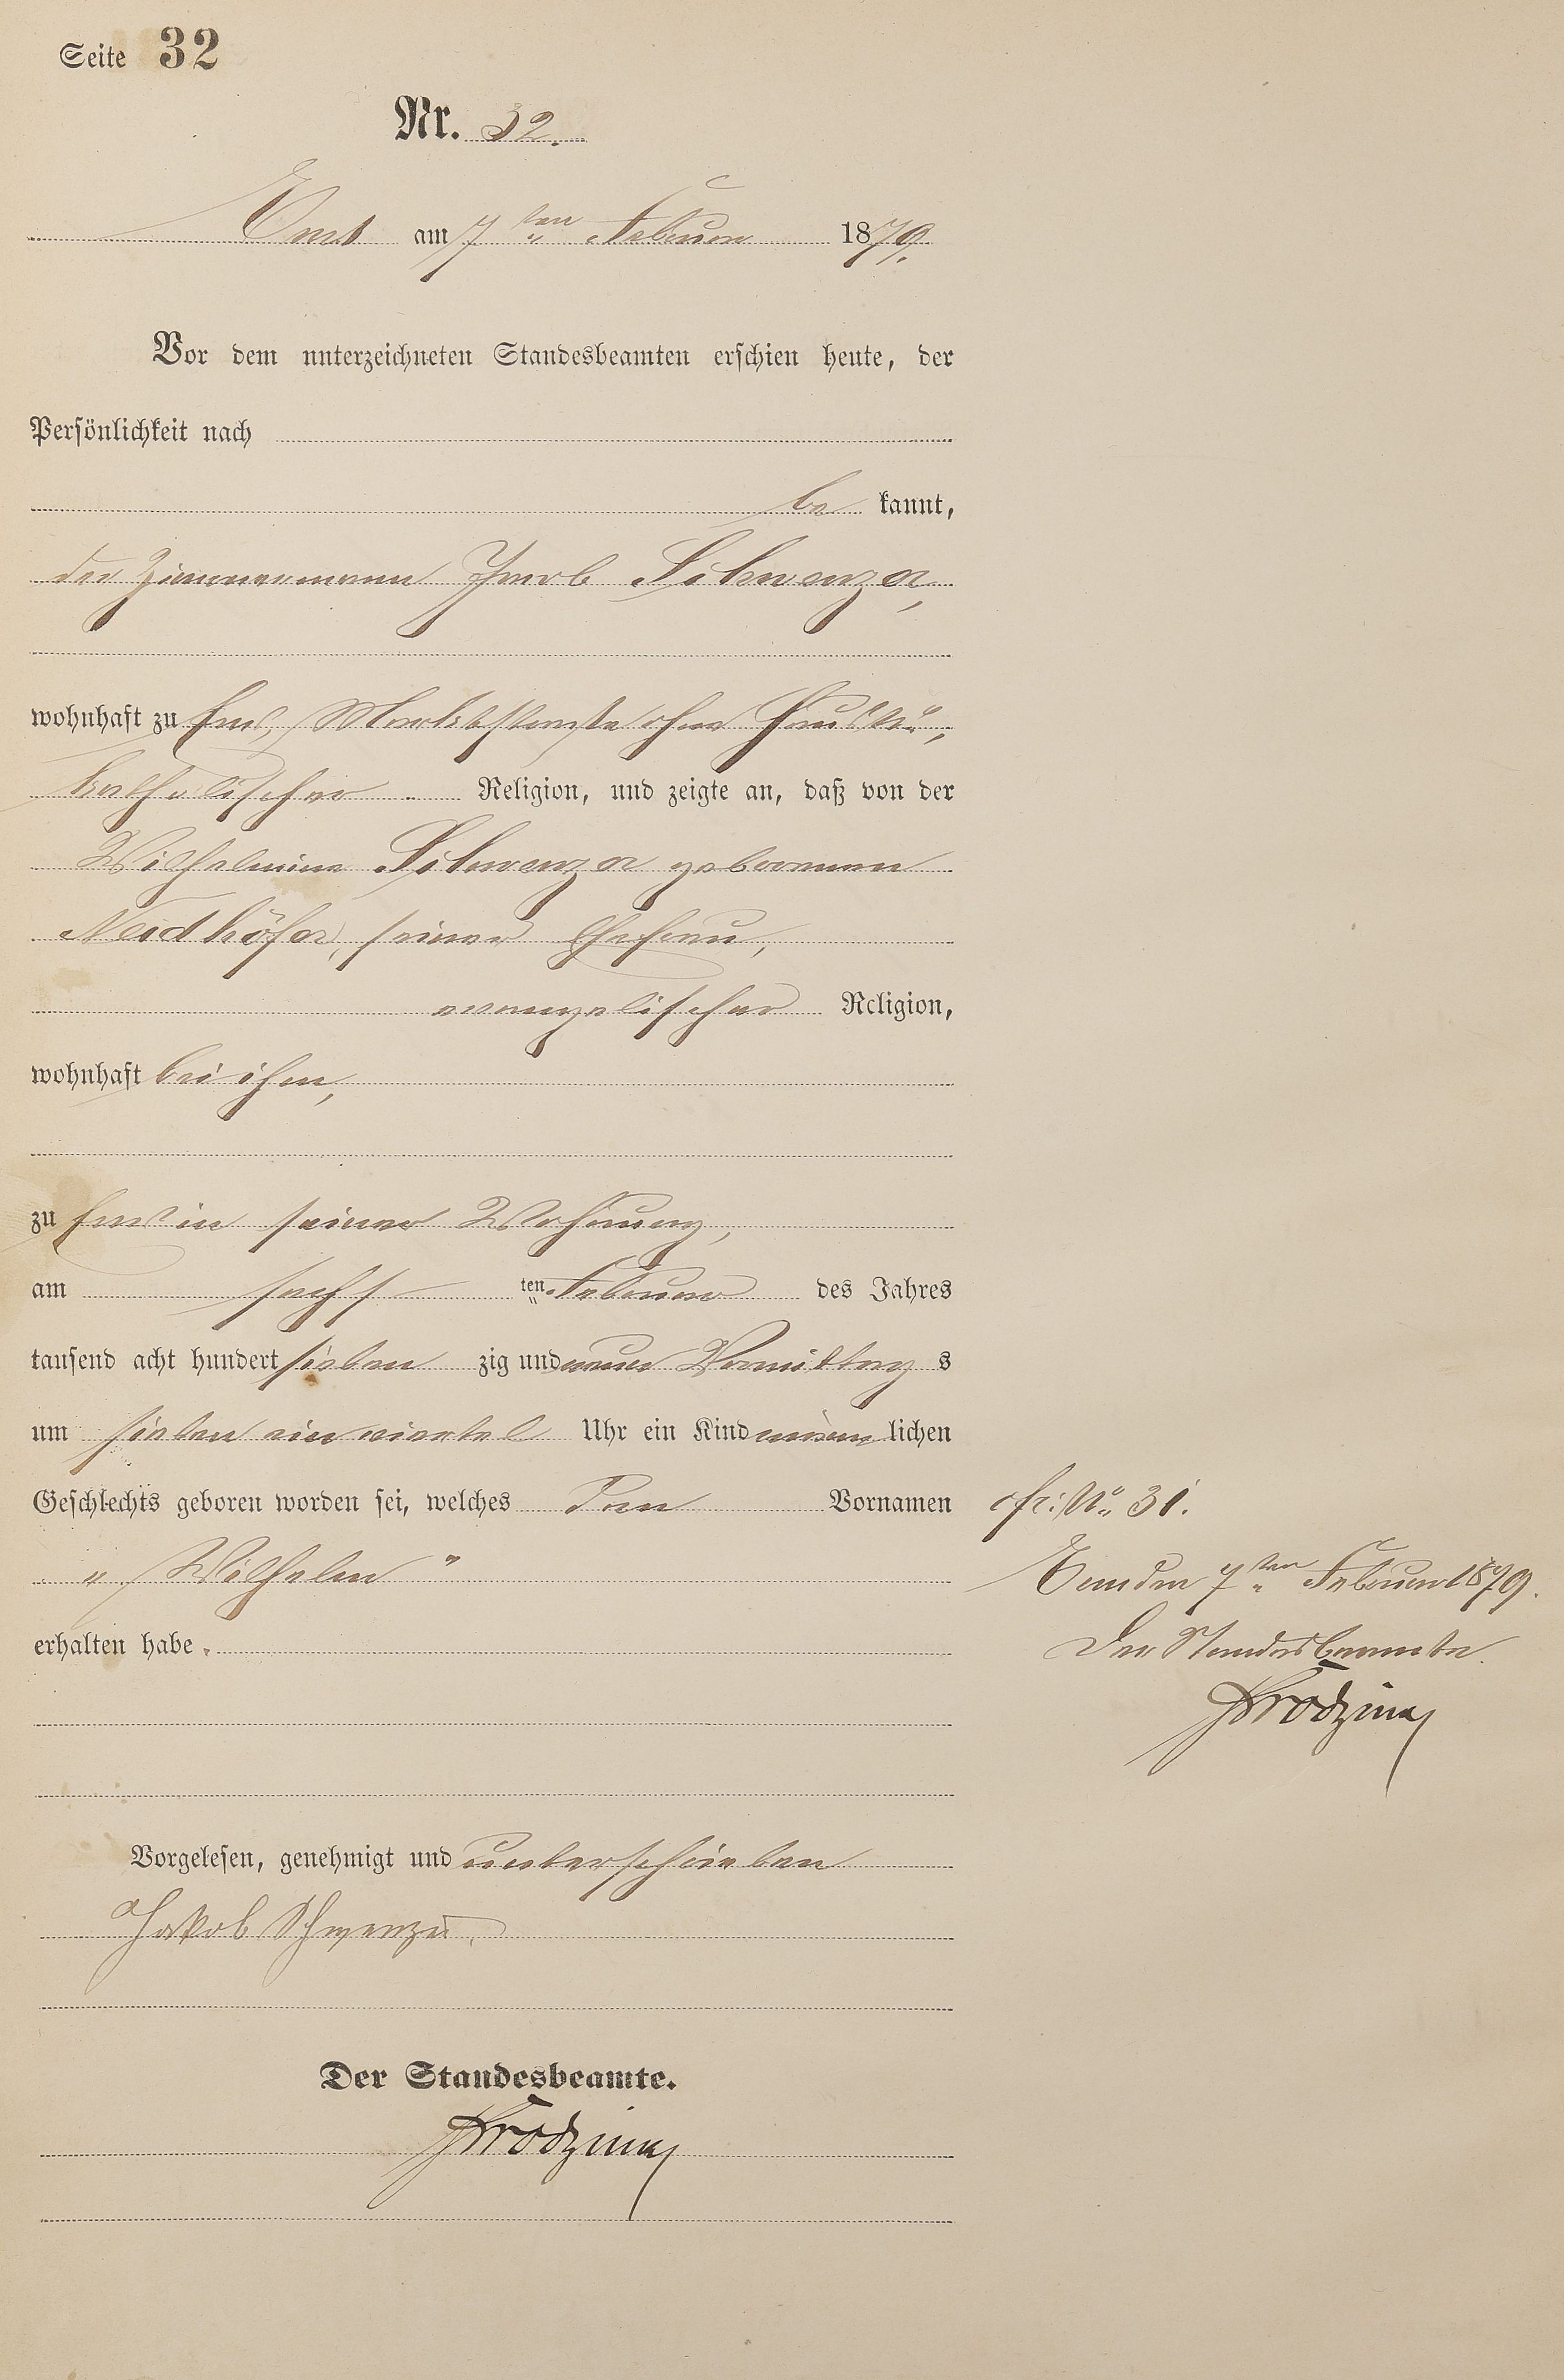 Seite 32
Nr. 32.
Ems am 7ten Februar 1879.
Vor dem unterzeichneten Standesbeamten erschien heute, der
Persönlichkeit nach
be kannt,
der Zimmermann Jacob Schwenzer,
wohnhaft zu Ems, Marktstraße ohne Haus No,
katholischer Religion, und zeigte an, daß von der
Wilhelmine Schwenzer geborenen
Neidhöfer, seiner Ehefrau,
evangelischer Religion,
wohnhaft bei ihm,
zu Ems in seiner Wohnung,
am sechsten Februar des Jahres
tausend acht hundert siebenzig und neun Vormittags
um sieben ein viertel Uhr ein Kind männlichen
Geschlechts geboren worden sei, welches den Vornamen
„Wilhelm"
erhalten habe.
Vorgelesen, genehmigt und unterschrieben
Jakob Schwenzer.
Der Standesbeamte.
cfr: No 31.
Ems den 7ten Februar 1879.
Der Standesbeamte.